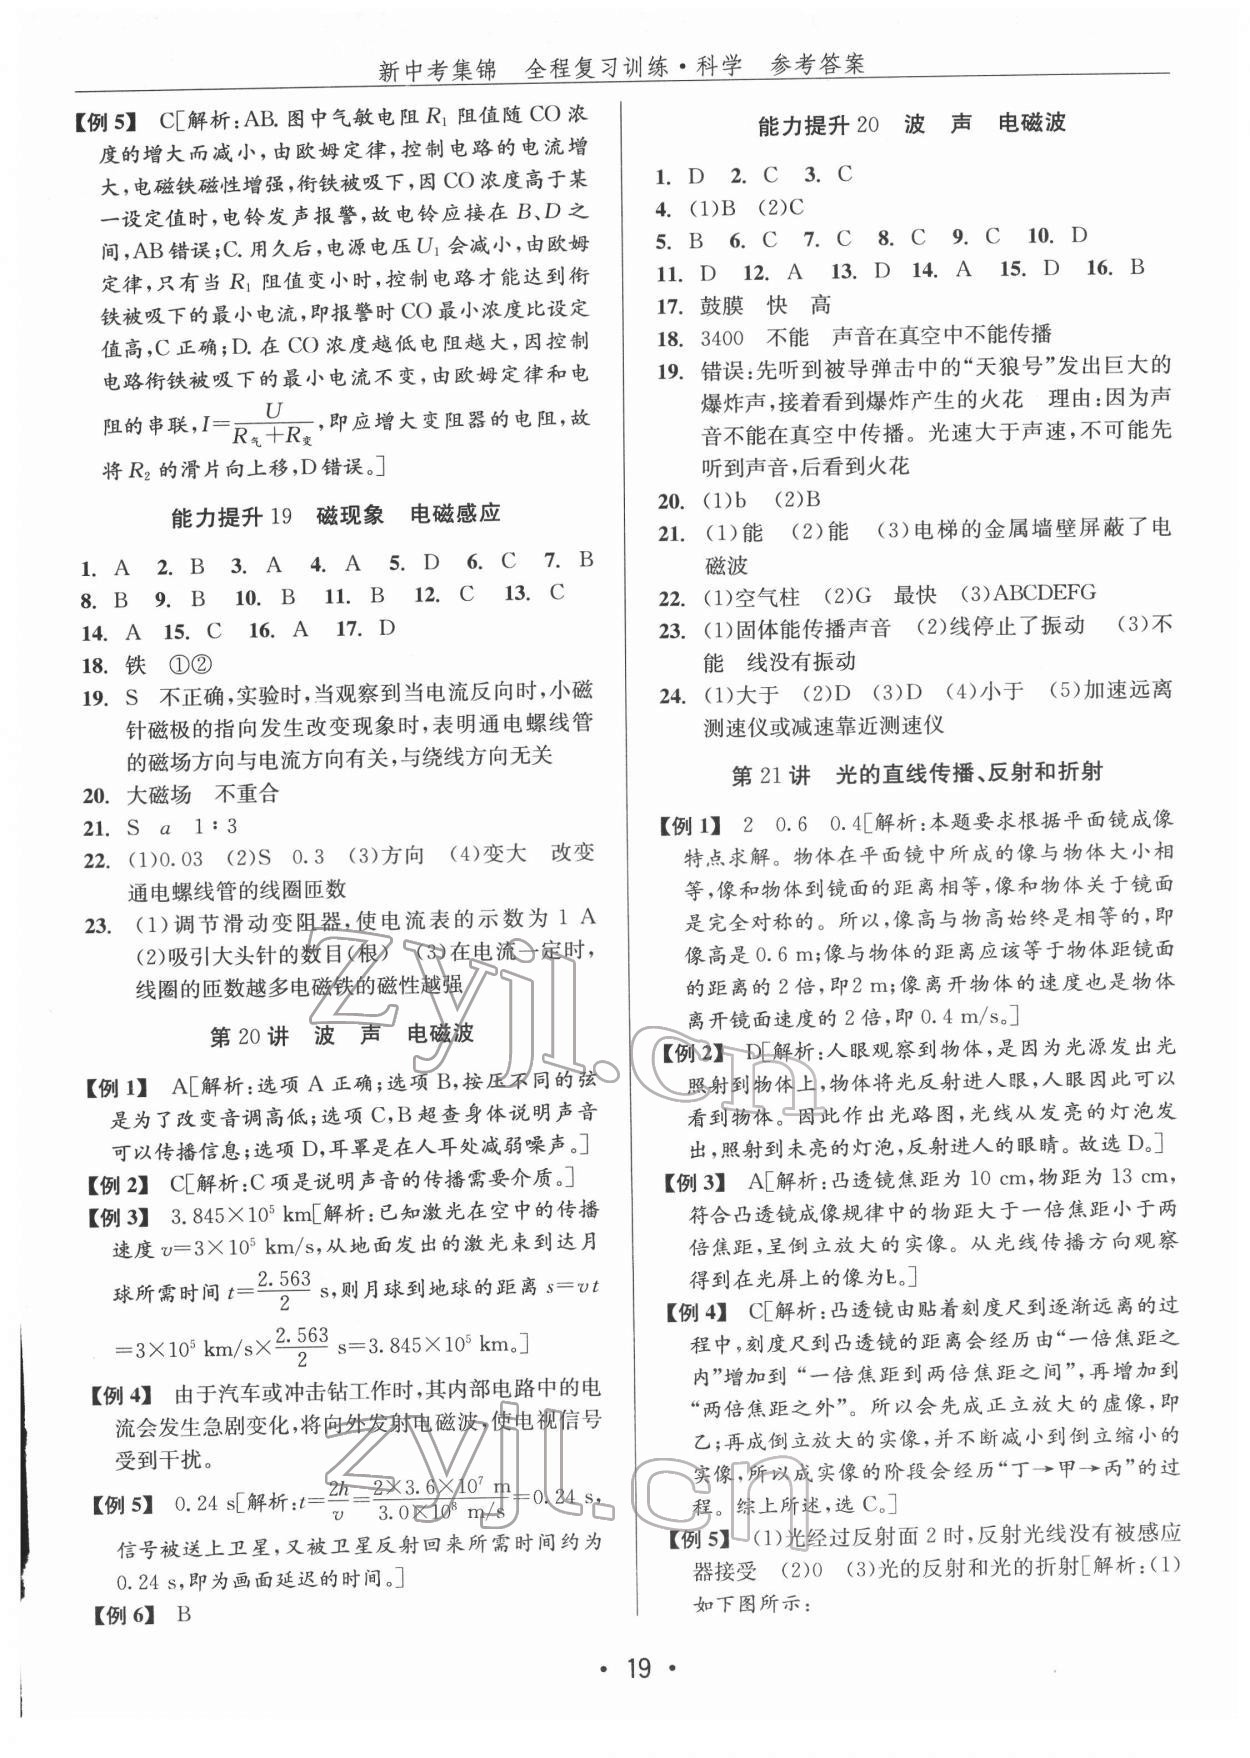 新中考集锦 全程复习训练·科学 参考答案
【例5】 C[解析:AB.图中气敏电阻R₁阻值随CO浓
度的增大而减小,由欧姆定律,控制电路的电流增
大,电磁铁磁性增强,衔铁被吸下,因CO浓度高于某
一设定值时,电铃发声报警,故电铃应接在B、D之
间,AB错误;C.用久后,电源电压U₁会减小,由欧姆
定律,只有当R₁阻值变小时,控制电路才能达到衔
铁被吸下的最小电流,即报警时CO最小浓度比设定
值高,C正确;D.在CO浓度越低电阻越大,因控制
电路衔铁被吸下的最小电流不变,由欧姆定律和电
阻的串联,I=U/(R气+R变),即应增大变阻器的电阻,故
将R₂的滑片向上移,D错误。]
能力提升19 磁现象 电磁感应
1. A 2. B 3. A 4. A 5. D 6. C 7. B
8. B 9. B 10. B 11. B 12. C 13. C
14. A 15. C 16. A 17. D
18. 铁 ①②
19. S 不正确,实验时,当观察到当电流反向时,小磁
针磁极的指向发生改变现象时,表明通电螺线管
的磁场方向与电流方向有关,与绕线方向无关
20. 大磁场 不重合
21. S a 1∶3
22. (1)0.03 (2)S 0.3 (3)方向 (4)变大 改变
通电螺线管的线圈匝数
23. (1)调节滑动变阻器,使电流表的示数为1 A
(2)吸引大头针的数目(根) (3)在电流一定时,
线圈的匝数越多电磁铁的磁性越强
第20讲 波 声 电磁波
【例1】 A[解析:选项A正确;选项B,按压不同的弦
是为了改变音调高低;选项C,B超查身体说明声音
可以传播信息;选项D,耳罩是在人耳处减弱噪声。]
【例2】 C[解析:C项是说明声音的传播需要介质。]
【例3】 3.845×10⁵ km[解析:已知激光在空中的传播
速度v=3×10⁵ km/s,从地面发出的激光束到达月
球所需时间t=2.563/2 s,则月球到地球的距离s=vt
=3×10⁵ km/s×2.563/2 s=3.845×10⁵ km。]
【例4】 由于汽车或冲击钻工作时,其内部电路中的电
流会发生急剧变化,将向外发射电磁波,使电视信号
受到干扰。
【例5】 0.24 s[解析:t=2h/v=(2×3.6×10⁷ m)/(3.0×10⁸ m/s)=0.24 s,
信号被送上卫星,又被卫星反射回来所需时间约为
0.24 s,即为画面延迟的时间。]
【例6】 B
能力提升20 波 声 电磁波
1. D 2. C 3. C
4. (1)B (2)C
5. B 6. C 7. C 8. C 9. C 10. D
11. D 12. A 13. D 14. A 15. D 16. B
17. 鼓膜 快 高
18. 3400 不能 声音在真空中不能传播
19. 错误:先听到被导弹击中的“天狼号”发出巨大的
爆炸声,接着看到爆炸产生的火花 理由:因为声
音不能在真空中传播。光速大于声速,不可能先
听到声音,后看到火花
20. (1)b (2)B
21. (1)能 (2)能 (3)电梯的金属墙壁屏蔽了电
磁波
22. (1)空气柱 (2)G 最快 (3)ABCDEFG
23. (1)固体能传播声音 (2)线停止了振动 (3)不
能 线没有振动
24. (1)大于 (2)D (3)D (4)小于 (5)加速远离
测速仪或减速靠近测速仪
第21讲 光的直线传播、反射和折射
【例1】 2 0.6 0.4[解析:本题要求根据平面镜成像
特点求解。物体在平面镜中所成的像与物体大小相
等,像和物体到镜面的距离相等,像和物体关于镜面
是完全对称的。所以,像高与物高始终是相等的,即
像高是0.6 m;像与物体的距离应该等于物体距镜面
的距离的2倍,即2 m;像离开物体的速度也是物体
离开镜面速度的2倍,即0.4 m/s。]
【例2】 D[解析:人眼观察到物体,是因为光源发出光
照射到物体上,物体将光反射进人眼,人眼因此可以
看到物体。因此作出光路图,光线从发亮的灯泡发
出,照射到未亮的灯泡,反射进人的眼睛。故选D。]
【例3】 A[解析:凸透镜焦距为10 cm,物距为13 cm,
符合凸透镜成像规律中的物距大于一倍焦距小于两
倍焦距,呈倒立放大的实像。从光线传播方向观察
得到在光屏上的像为。]
【例4】 C[解析:凸透镜由贴着刻度尺到逐渐远离的过
程中,刻度尺到凸透镜的距离会经历由“一倍焦距之
内”增加到“一倍焦距到两倍焦距之间”,再增加到
“两倍焦距之外”。所以会先成正立放大的虚像,即
乙;再成倒立放大的实像,并不断减小到倒立缩小的
实像,所以成实像的阶段会经历“丁→甲→丙”的过
程。综上所述,选C。]
【例5】 (1)光经过反射面2时,反射光线没有被感应
器接受 (2)0 (3)光的反射和光的折射[解析:(1)
如下图所示:
· 19 ·
zyjl.cn
zyjl.cn